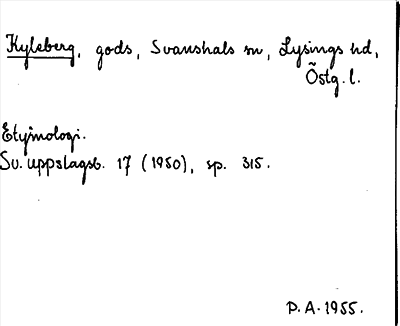 Kyleberg, gods, Svanshals sn, Lysings hd,
Östg. l.
Etymologi.
Sv. uppslagsb. 17 (1950), sp. 315.
P.A. 1955.